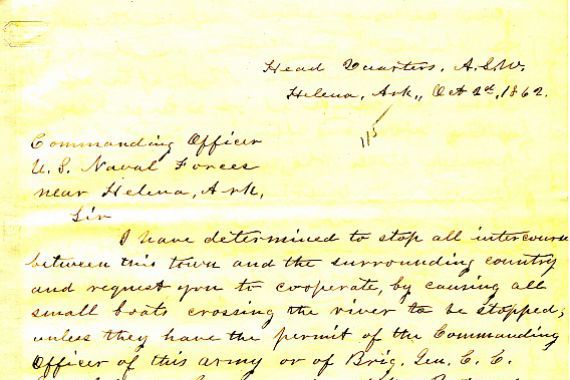 Head Quarters, A.S.W.
Helena, Ark., Oct 2d, 1862.
115
Commanding Officer
U. S. Naval Forces
near Helena, Ark,
Sir
I have determined to stop all intercourse
between this town and the surrounding country
and request you to cooperate, by causing all
small boats crossing the river to be stopped;
unless they have the permit of the Commanding
Officer of this army or of Brig. Gen. C. C.